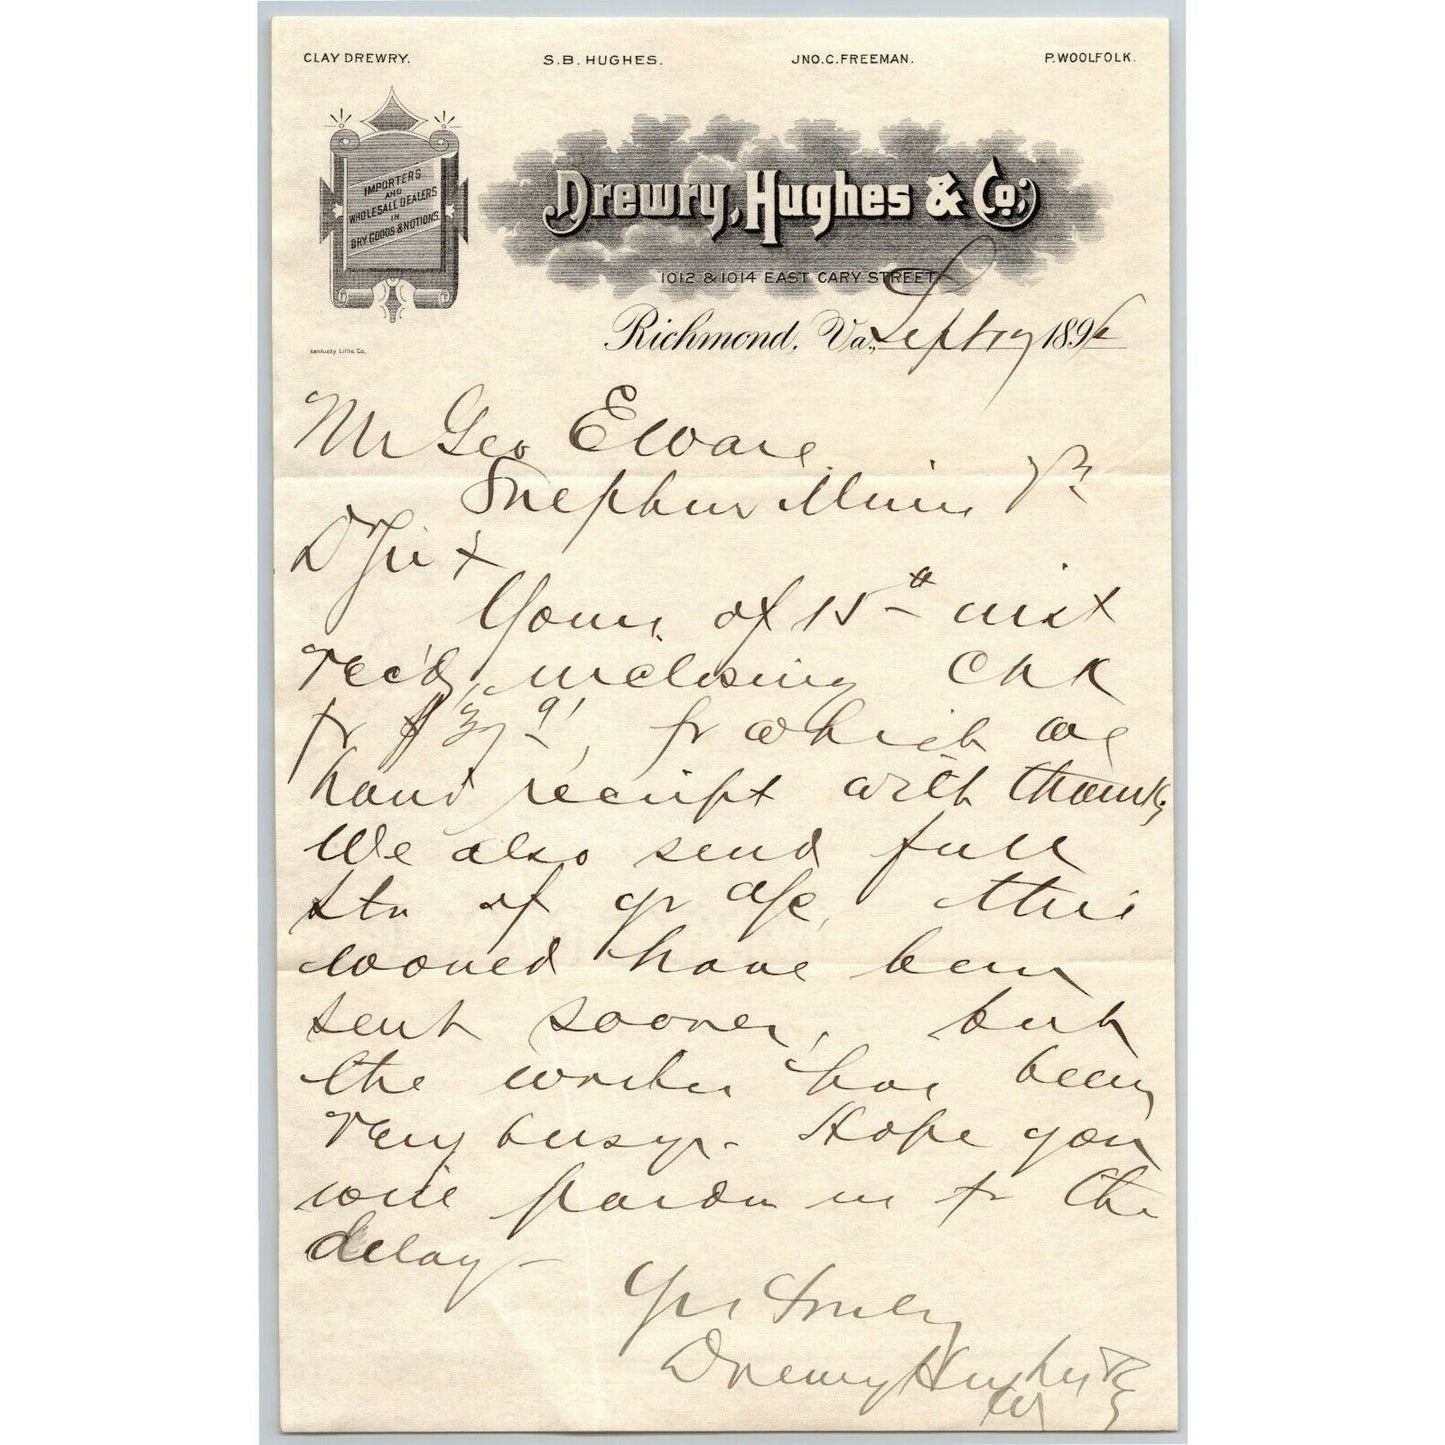 CLAY DREWRY. S.B. HUGHES. JNO.C.FREEMAN. P.WOOLFOLK.
IMPORTERS
AND
WHOLESALE DEALERS
IN
DRY GOODS & NOTIONS.
Drewry, Hughes & Co.,
1012 & 1014 EAST CARY STREET
Richmond, Va., Sept 17 1896
Kentucky Litho. Co.
Mr Geo E Ware
Sulphur Mines Va
D Sir
Yours of 15th inst
rec'd, inclosing Chk
fr $37 91, fr which we
hand receipt with thanks
We also send full
Stn of yr a/c, this
would have been
sent sooner, but
the writer has been
very busy - Hope you
will pardon us fr the
delay -
Yrs Truly
Drewry Hughes & Co